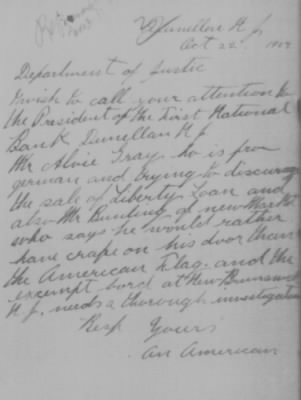 Dunellen N J
Oct 22 1917
Department of Justic
I wish to call your attention to
the President of the First National
Bank Dunellen N J
Mr Alvie Gray ho is pro
german and trying to discurage
the sale of Liberty Loan and
also Mr Bunting of new Market
who says he would rather
have crape on his door than
the American Flag. and the
exempt bord at New Brunswick
N. J. needs a thorough investigation
Resp Yours
An American